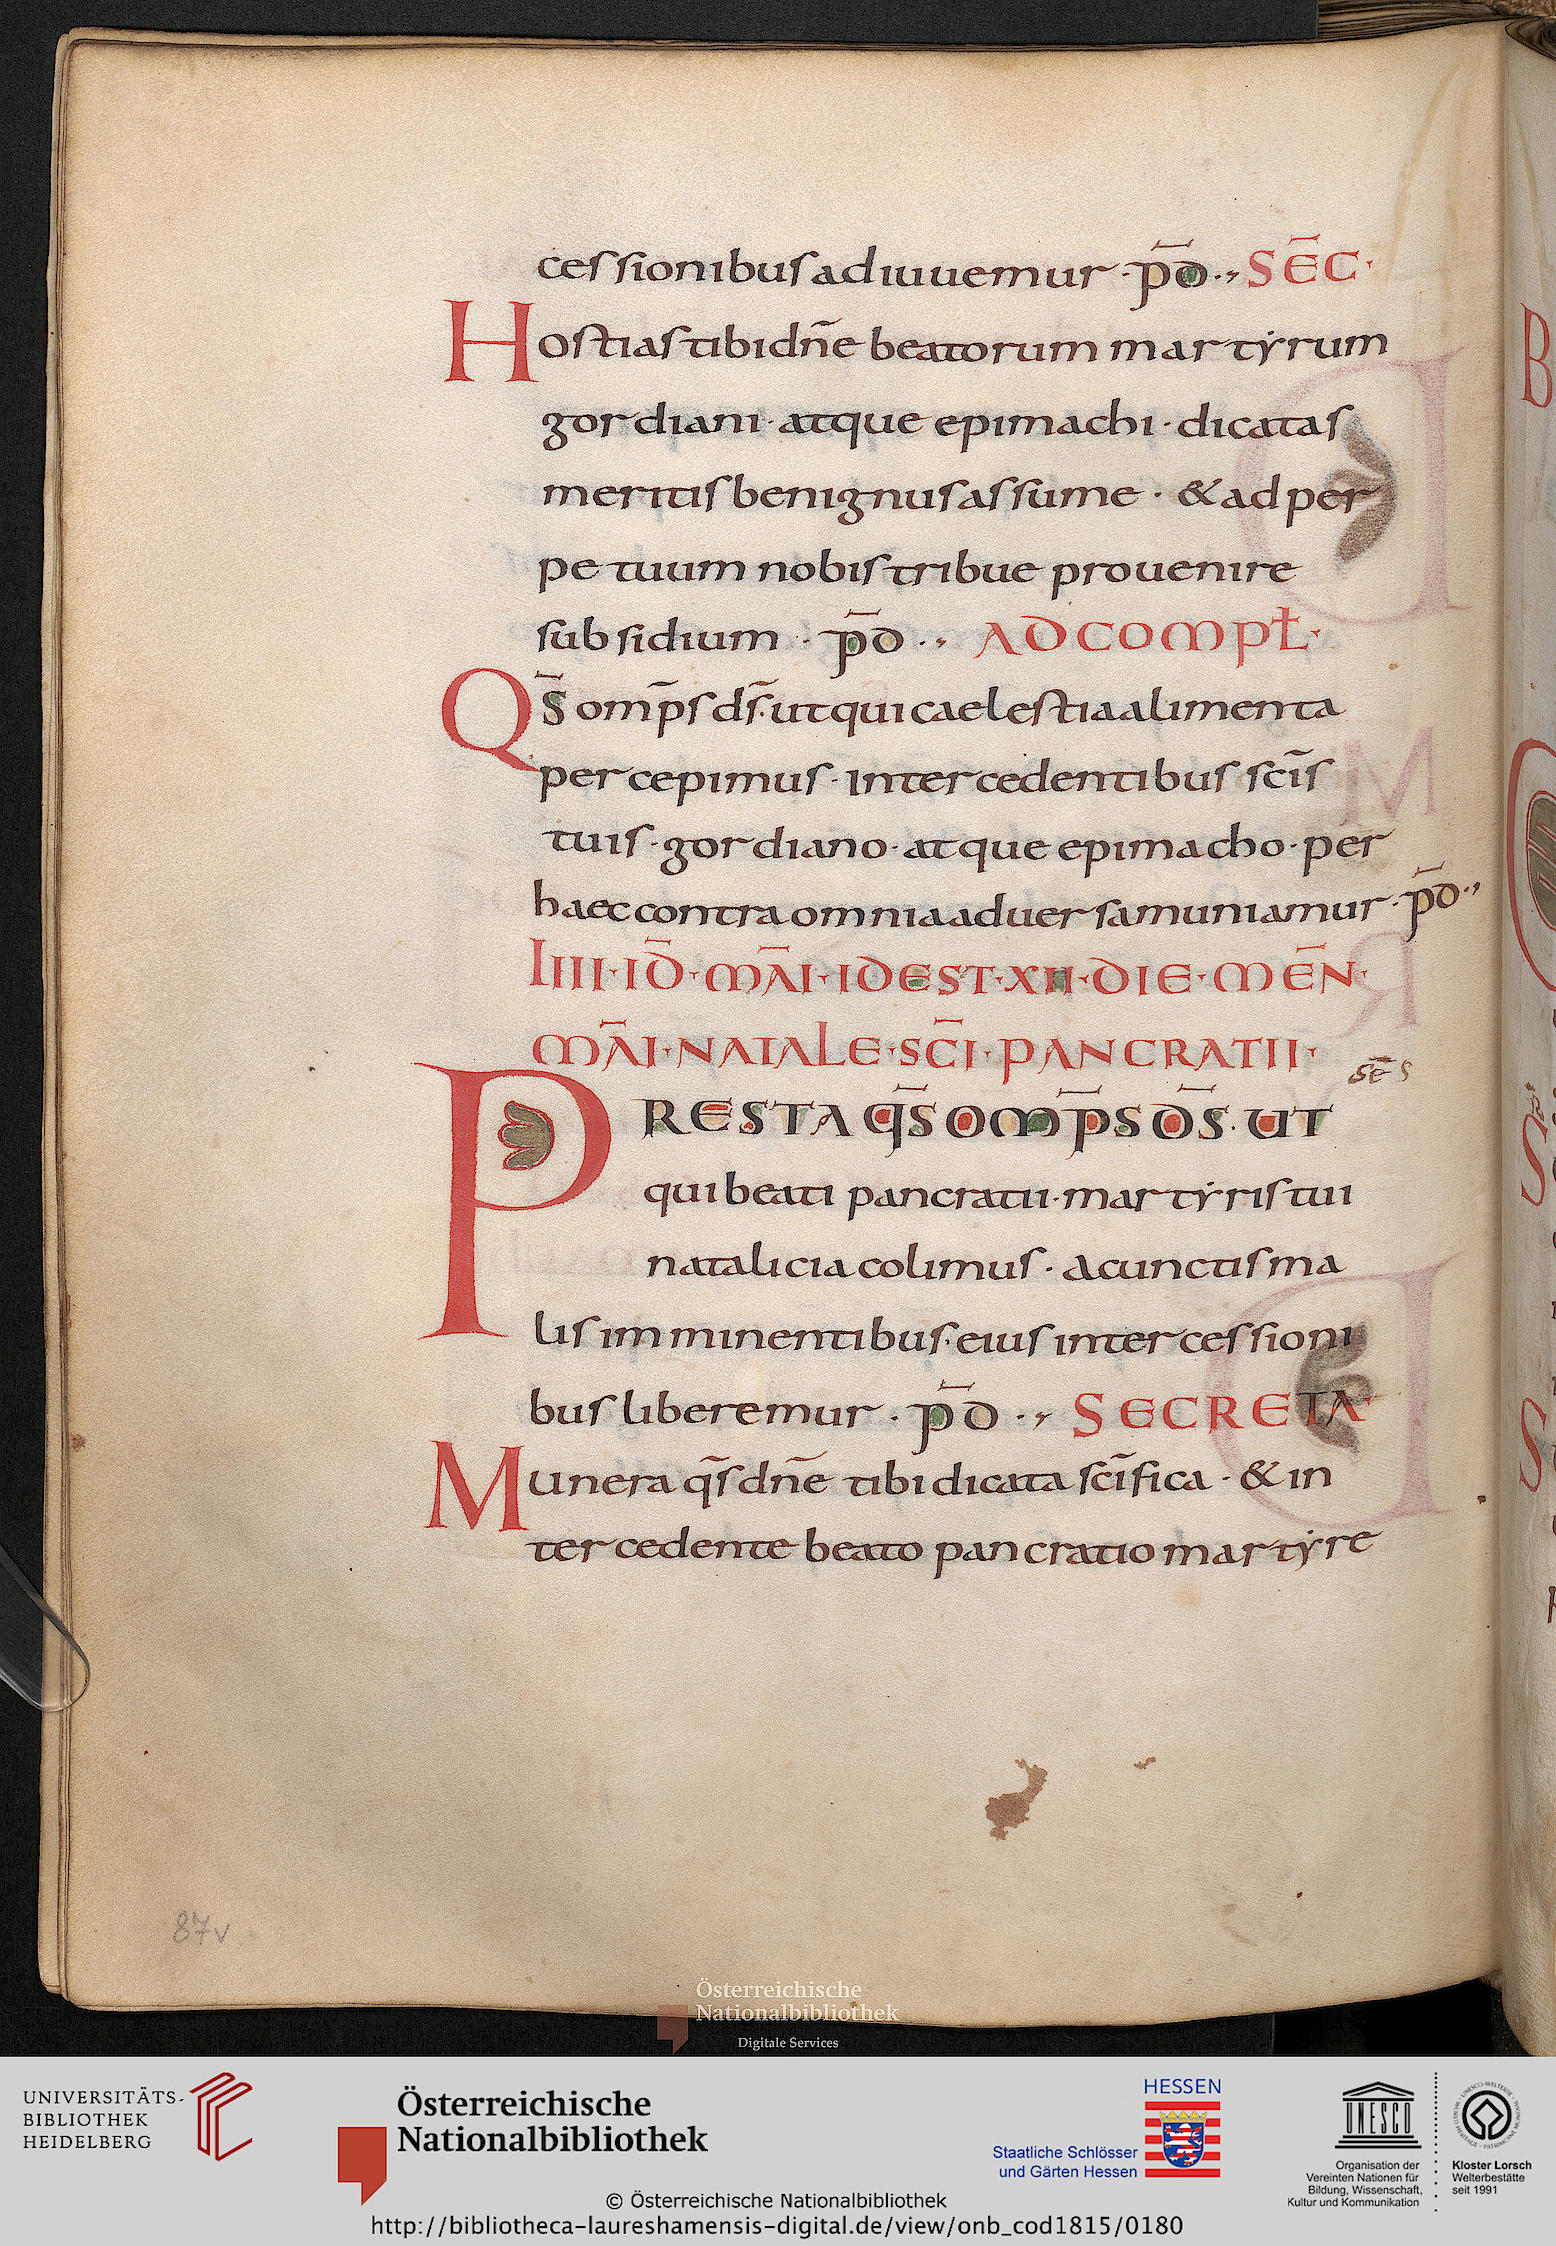 cessionibus adiuuemur · p̄d ·, SĒC·
Hostias tibi dn̄e beatorum martẏrum
gordiani· atque epimachi · dicatas
meritis benignus assume · & ad per
petuum nobis tribue prouenire
subsidium · p̄d ·, AD COMPŁ·
Qs̄ omp̄s ds̄· ut qui caelestia alimenta
percepimus · intercedentibus sc̄is
tuis · gordiano · atque epimacho · per
haec contra omnia aduersa muniamur · p̄d·,
IIII · ID̄ · MĀI · ID EST · XII · DIE · MEN̄·
MĀI · NATALE · SC̄I · PANCRATII·
sēs
PRESTA QS̄ OMP̄S DS̄· UT
qui beati pancratii· martẏris tui
natalicia colimus · a cunctis ma
lis imminentibus· eius intercessioni
bus liberemur · p̄d ·, SECRETA
Munera qs̄ dn̄e tibi dicata sc̄ifica · & in
tercedente beato pancratio martẏre
87v
Österreichische
Nationalbibliothek
Digitale Services
UNIVERSITÄTS-
BIBLIOTHEK
HEIDELBERG
Österreichische
Nationalbibliothek
HESSEN
Staatliche Schlösser
und Gärten Hessen
UNESCO
Organisation der
Vereinten Nationen für
Bildung, Wissenschaft,
Kultur und Kommunikation
Kloster Lorsch
Welterbestätte
seit 1991
© Österreichische Nationalbibliothek
http://bibliotheca-laureshamensis-digital.de/view/onb_cod1815/0180